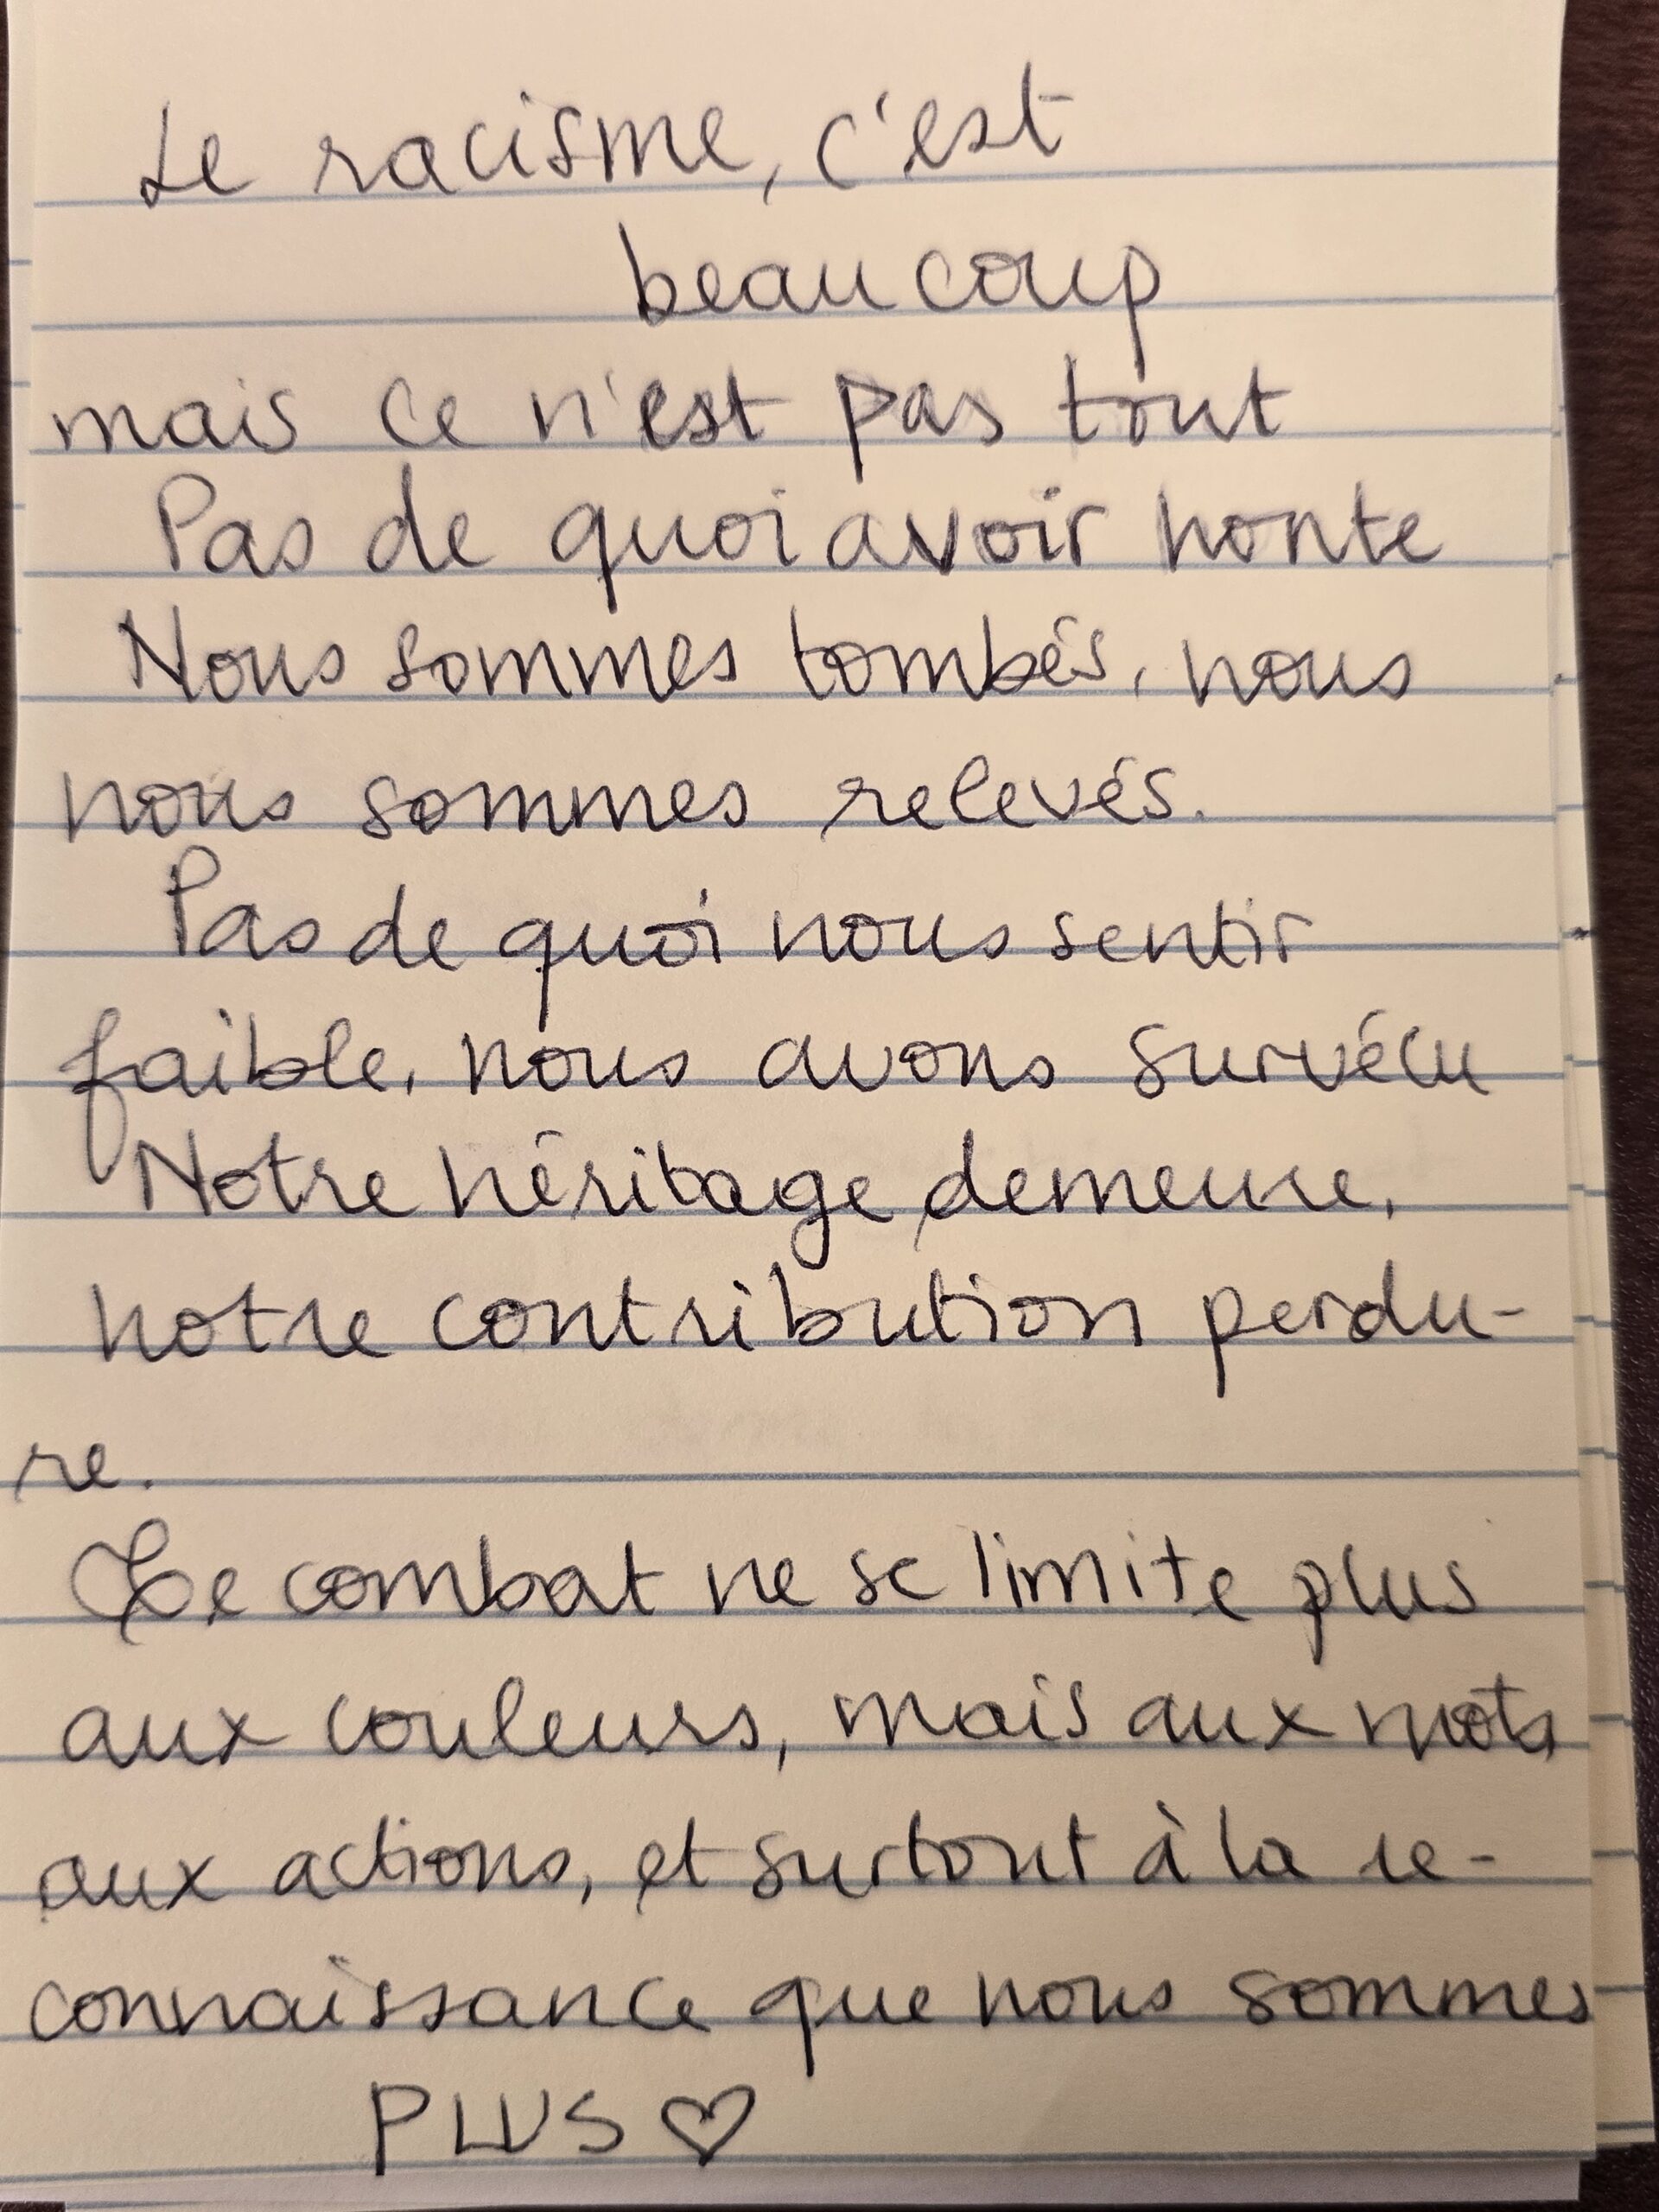 Le racisme, c'est
beaucoup
mais ce n'est pas tout
Pas de quoi avoir honte
Nous sommes tombés, nous
nous sommes relevés.
Pas de quoi nous sentir
faible, nous avons survécu
Notre héritage demeure,
notre contribution perdu-
re.
Le combat ne se limite plus
aux couleurs, mais aux mots
aux actions, et surtout à la re-
connaïssance que nous sommes
PLUS ♡